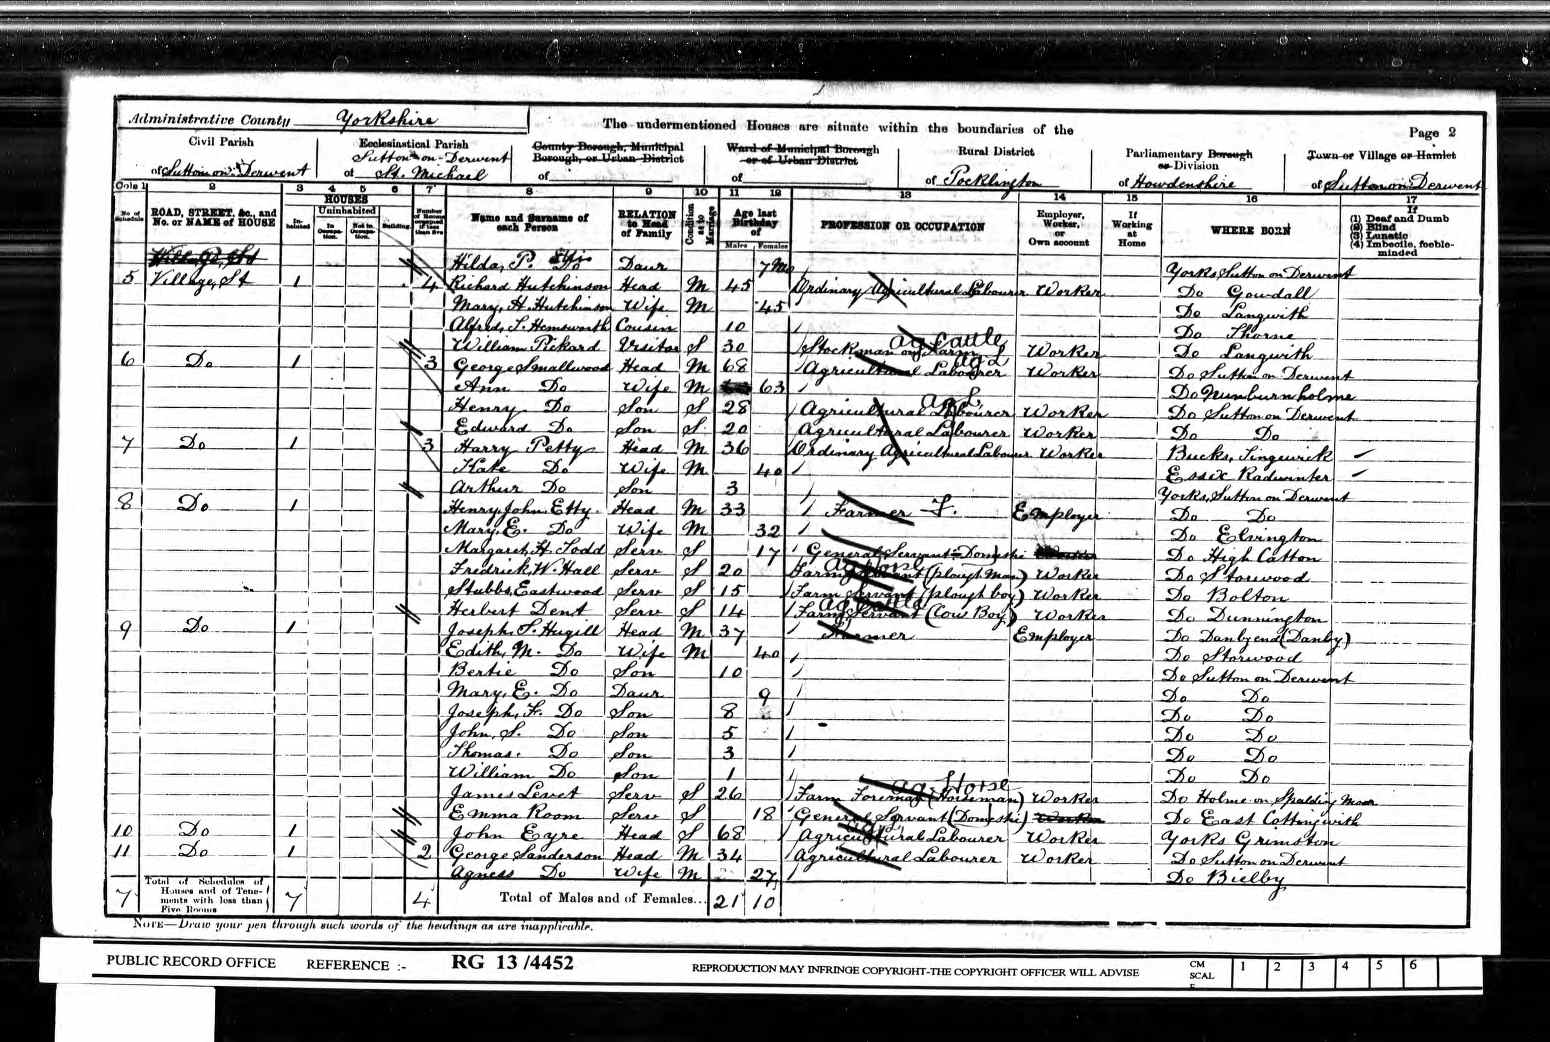 Administrative County Yorkshire
The undermentioned Houses are situate within the boundaries of the
Page 2
Civil Parish
of Sutton on Derwent
Ecclesiastical Parish
Sutton-on-Derwent
of St. Michael
County Borough, Municipal
Borough, or Urban District
of
Ward of Municipal Borough
or of Urban District
of
Rural District
of Pocklington
Parliamentary Borough
or Division
of Howdenshire
Town or Village or Hamlet
of Sutton on Derwent
Cols 1 2 3 4 5 6 7 8 9 10 11 12 13 14 15 16 17
No. of Schedule
ROAD, STREET, &c., and
No. or NAME of HOUSE
HOUSES
Inhabited
Uninhabited
In Occupation.
Not in Occupation.
Building.
Number of Rooms occupied if less than five
Name and Surname of
each Person
RELATION
to Head
of Family
Condition as to Marriage
Age last
Birthday
of
Males Females
PROFESSION OR OCCUPATION
Employer,
Worker,
or
Own account
If
Working
at
Home
WHERE BORN
If
(1) Deaf and Dumb
(2) Blind
(3) Lunatic
(4) Imbecile, feeble-
minded
Village, Std
Hilda, P. Do Daur 7 Mo Yorks, Sutton on Derwent
5 Village, St 1 4 Richard Hutchinson Head M 45 Ordinary Agricultural Labourer Worker Do Gowdall
Mary, H. Hutchinson Wife M 45 Do Langwith
Alfred, S. Hemsworth Cousin 10 Do Thorne
William Pickard Visitor S 30 Stockman on Farm ag Cattle Worker Do Langwith
6 Do 1 3 George Smallwood Head M 68 Agricultural Labourer ag L Worker Do Sutton on Derwent
Ann Do Wife M 63 Do Nunburnholme
Henry Do Son S 28 Agricultural Labourer ag L Worker Do Sutton on Derwent
Edward Do Son S 20 Agricultural Labourer Worker Do Do
7 Do 1 3 Harry Petty Head M 36 Ordinary Agricultural Labourer Worker Bucks, Tingewick
Kate Do Wife M 40 Essix Radwinter
Arthur Do Son 3 Yorks, Sutton on Derwent
8 Do 1 Henry, John Etty Head M 33 Farmer F. Employer Do Do
Mary, E. Do Wife M 32 Do Elvington
Margaret, H. Todd Serv S 17 General Servant = Domestic Worker Do High Catton
Fredrick, W. Hall Serv S 20 Farm Servant (plough Man) ag Horse Worker Do Storwood
Stubbs, Eastwood Serv S 15 Farm Servant (plough boy) Worker Do Bolton
Herbert Dent Serv S 14 Farm Servant (Cow Boy) ag Cattle Worker Do Dunnington
9 Do 1 Joseph, S. Hugill Head M 37 Farmer Employer Do Danbyend (Danby)
Edith, M. Do Wife M 40 Do Storwood
Bertie Do Son 10 Do Sutton on Derwent
Mary, E. Do Daur 9 Do Do
Joseph, F. Do Son 8 Do Do
John, S. Do Son 5 Do Do
Thomas. Do Son 3 Do Do
William Do Son 1 Do Do
James Levet Serv S 26 Farm Foreman (Horseman) ag. Horse Worker Do Holme on Spalding Moor
Emma Room Serv S 18 General Servant (Domestic) Worker Do East Cottingwith
10 Do 1 John Eyre Head S 68 Agricultural Labourer Worker Yorks Grimston
11 Do 1 2 George Sanderson Head M 34 Agricultural Labourer Worker Do Sutton on Derwent
Agness Do Wife M 27 Do Bielby
7 Total of Schedules of
Houses and of Tene-
ments with less than
Five Rooms 7 4 Total of Males and of Females... 21 10
NOTE—Draw your pen through such words of the headings as are inapplicable.
PUBLIC RECORD OFFICE REFERENCE :- RG 13 /4452 REPRODUCTION MAY INFRINGE COPYRIGHT-THE COPYRIGHT OFFICER WILL ADVISE
CM
SCAL
E
1 2 3 4 5 6